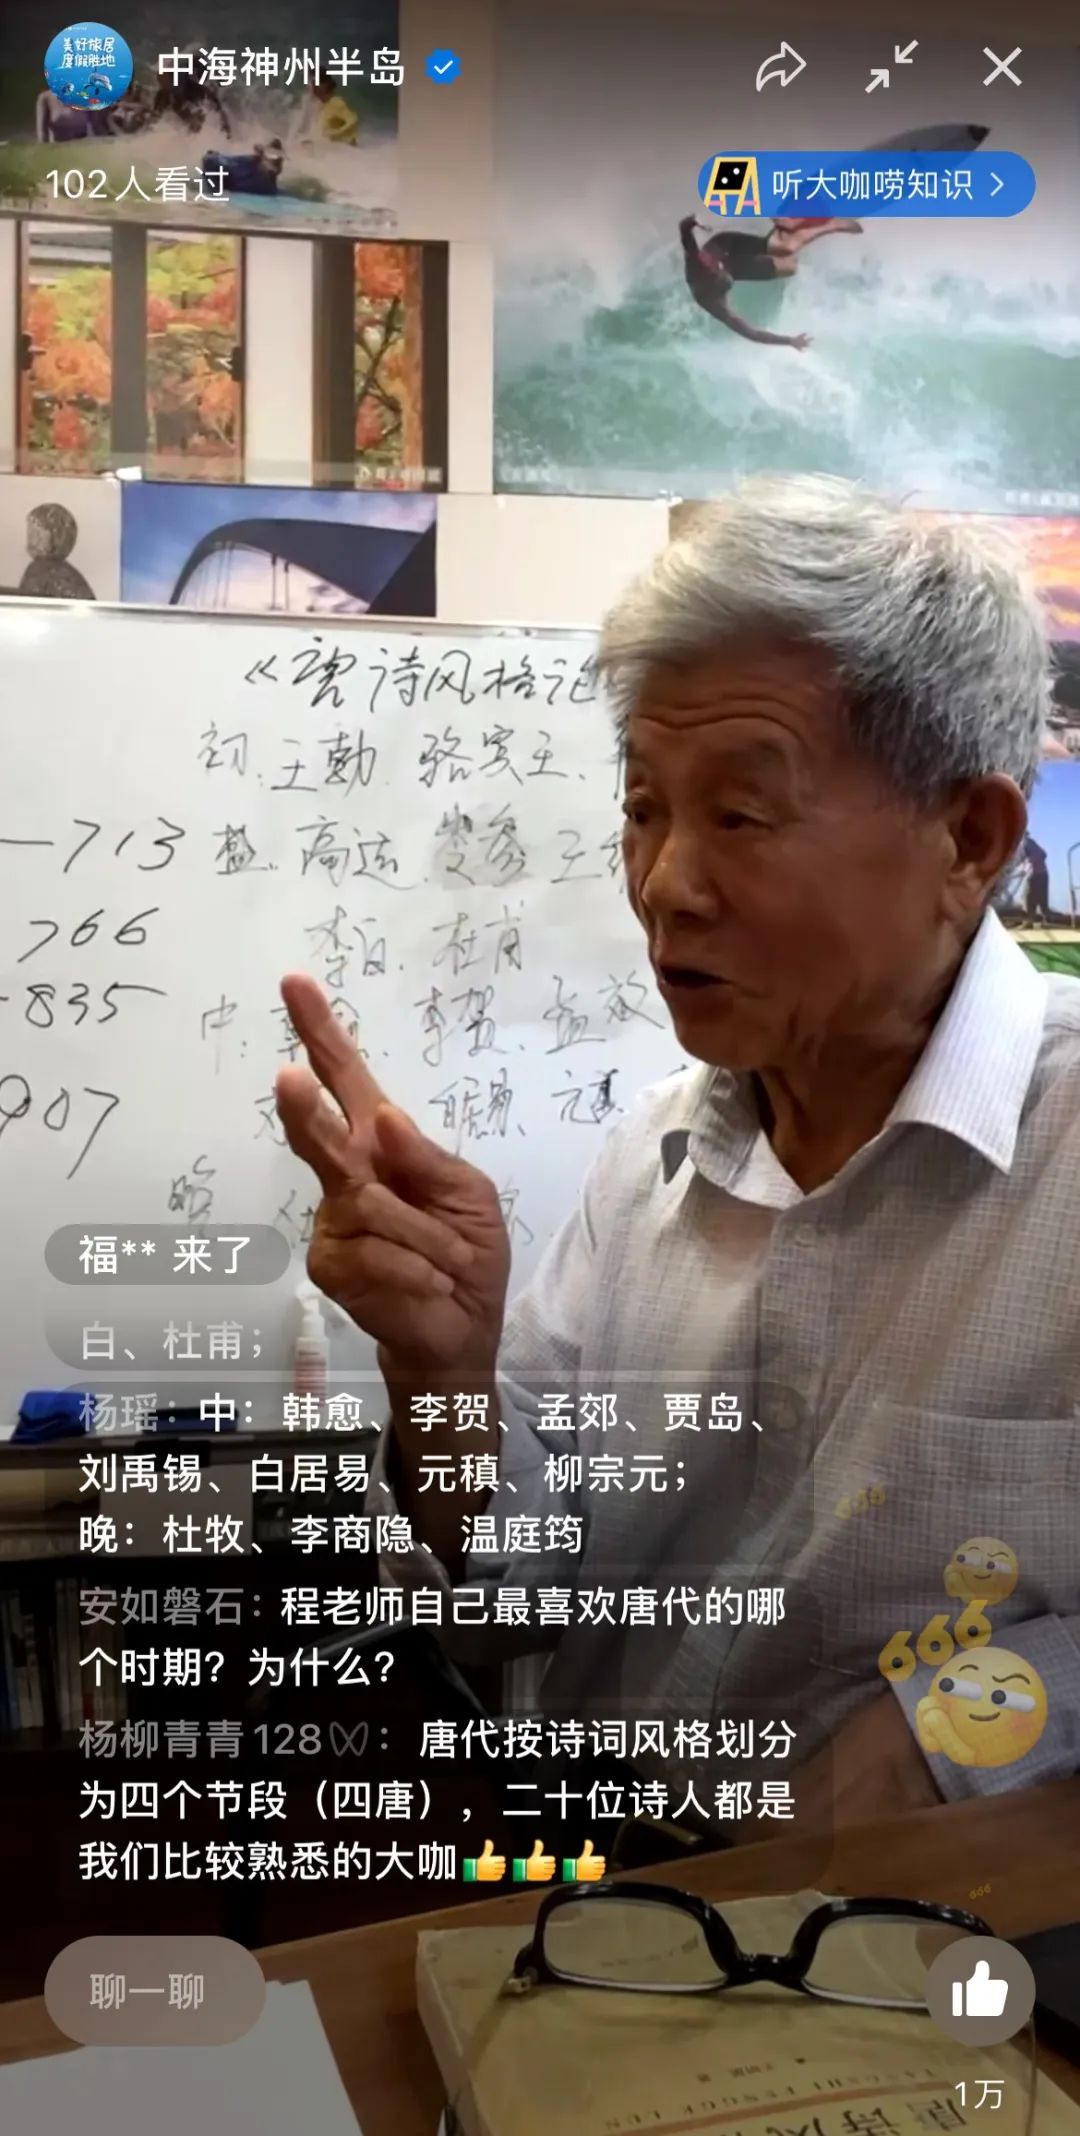 美好旅居
度假胜地
中海神州半岛
102人看过
听大咖唠知识
《唐诗风格论
初.王勃.骆宾王、
-713 盛.高适.岑参 王维
766 李白.杜甫
-835 中:韩愈、李贺、孟郊
907 居易、元稹、
晚
福** 来了
白、杜甫；
杨瑶：中：韩愈、李贺、孟郊、贾岛、
刘禹锡、白居易、元稹、柳宗元；
晚：杜牧、李商隐、温庭筠
安如磐石：程老师自己最喜欢唐代的哪
个时期？为什么？
杨柳青青128：唐代按诗词风格划分
为四个节段（四唐），二十位诗人都是
我们比较熟悉的大咖👍👍👍
666
666
666
聊一聊
1万
TANGSHI FENGGE LUN
唐诗风